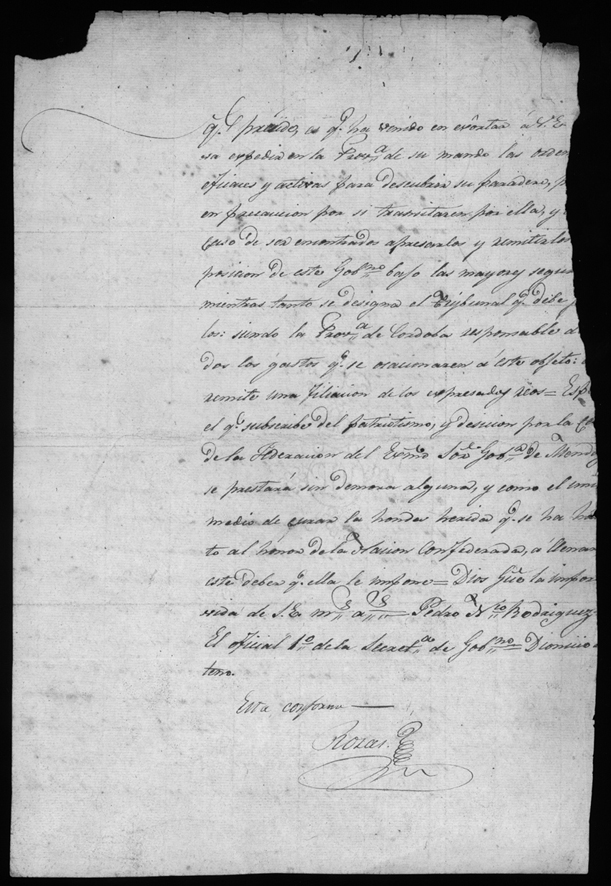 q.e preside, es q.e ha venido en exôrtar á S. E.
expedir en la Prov.a de su mando las orden
eficaces y activas para descubrir su paradero, p
en precaucion por si transitaren por ella, y
caso de ser encontrados apresarlos y remitirlos
posicion de este Gob.no bajo las mayores segu
mientras tanto se designa el Tribunal q.e debe
los: siendo la Prov.a de Cordoba responsable d
dos los gastos q.e se ocacionaren á este objeto:
remite una filiacion de los expresados reos = Esp
el q.e subscribe del patriotismo, y decision por la
de la Federacion del Exmo Sor. Gob.or de Mendoz
se prestará sin demora alguna, y como el uni
medio de curar la honda herida q.e se ha he
to al honor de la Nacion Confederada, á llenar
este deber q.e ella le impone = Dios gue la impor
vida de S. E. m.s a.s = Pedro N.co Rodriguez
El oficial 1.o de la Secret.a de Gob.no = Dionicio
teno.
Esta conforme —
Rozas.